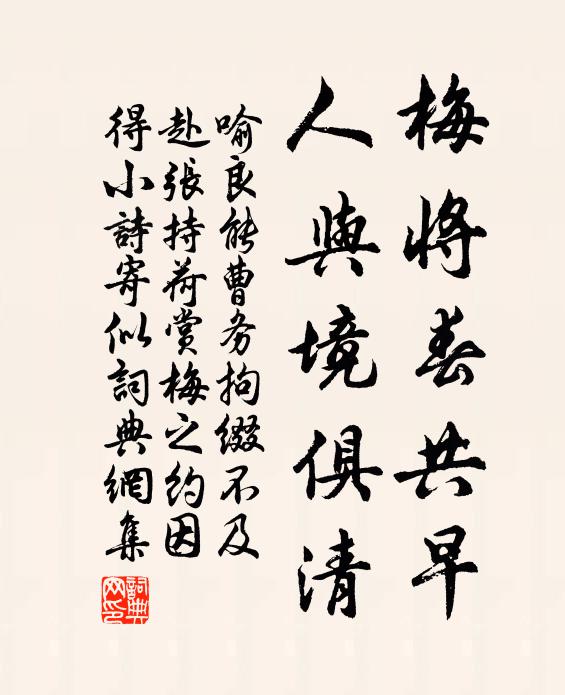 梅將春共早
人與境俱清
喻良能曹务拘缀不及
赴張持荷赏梅之約因
得小詩寄似詞典網集
詞典网印